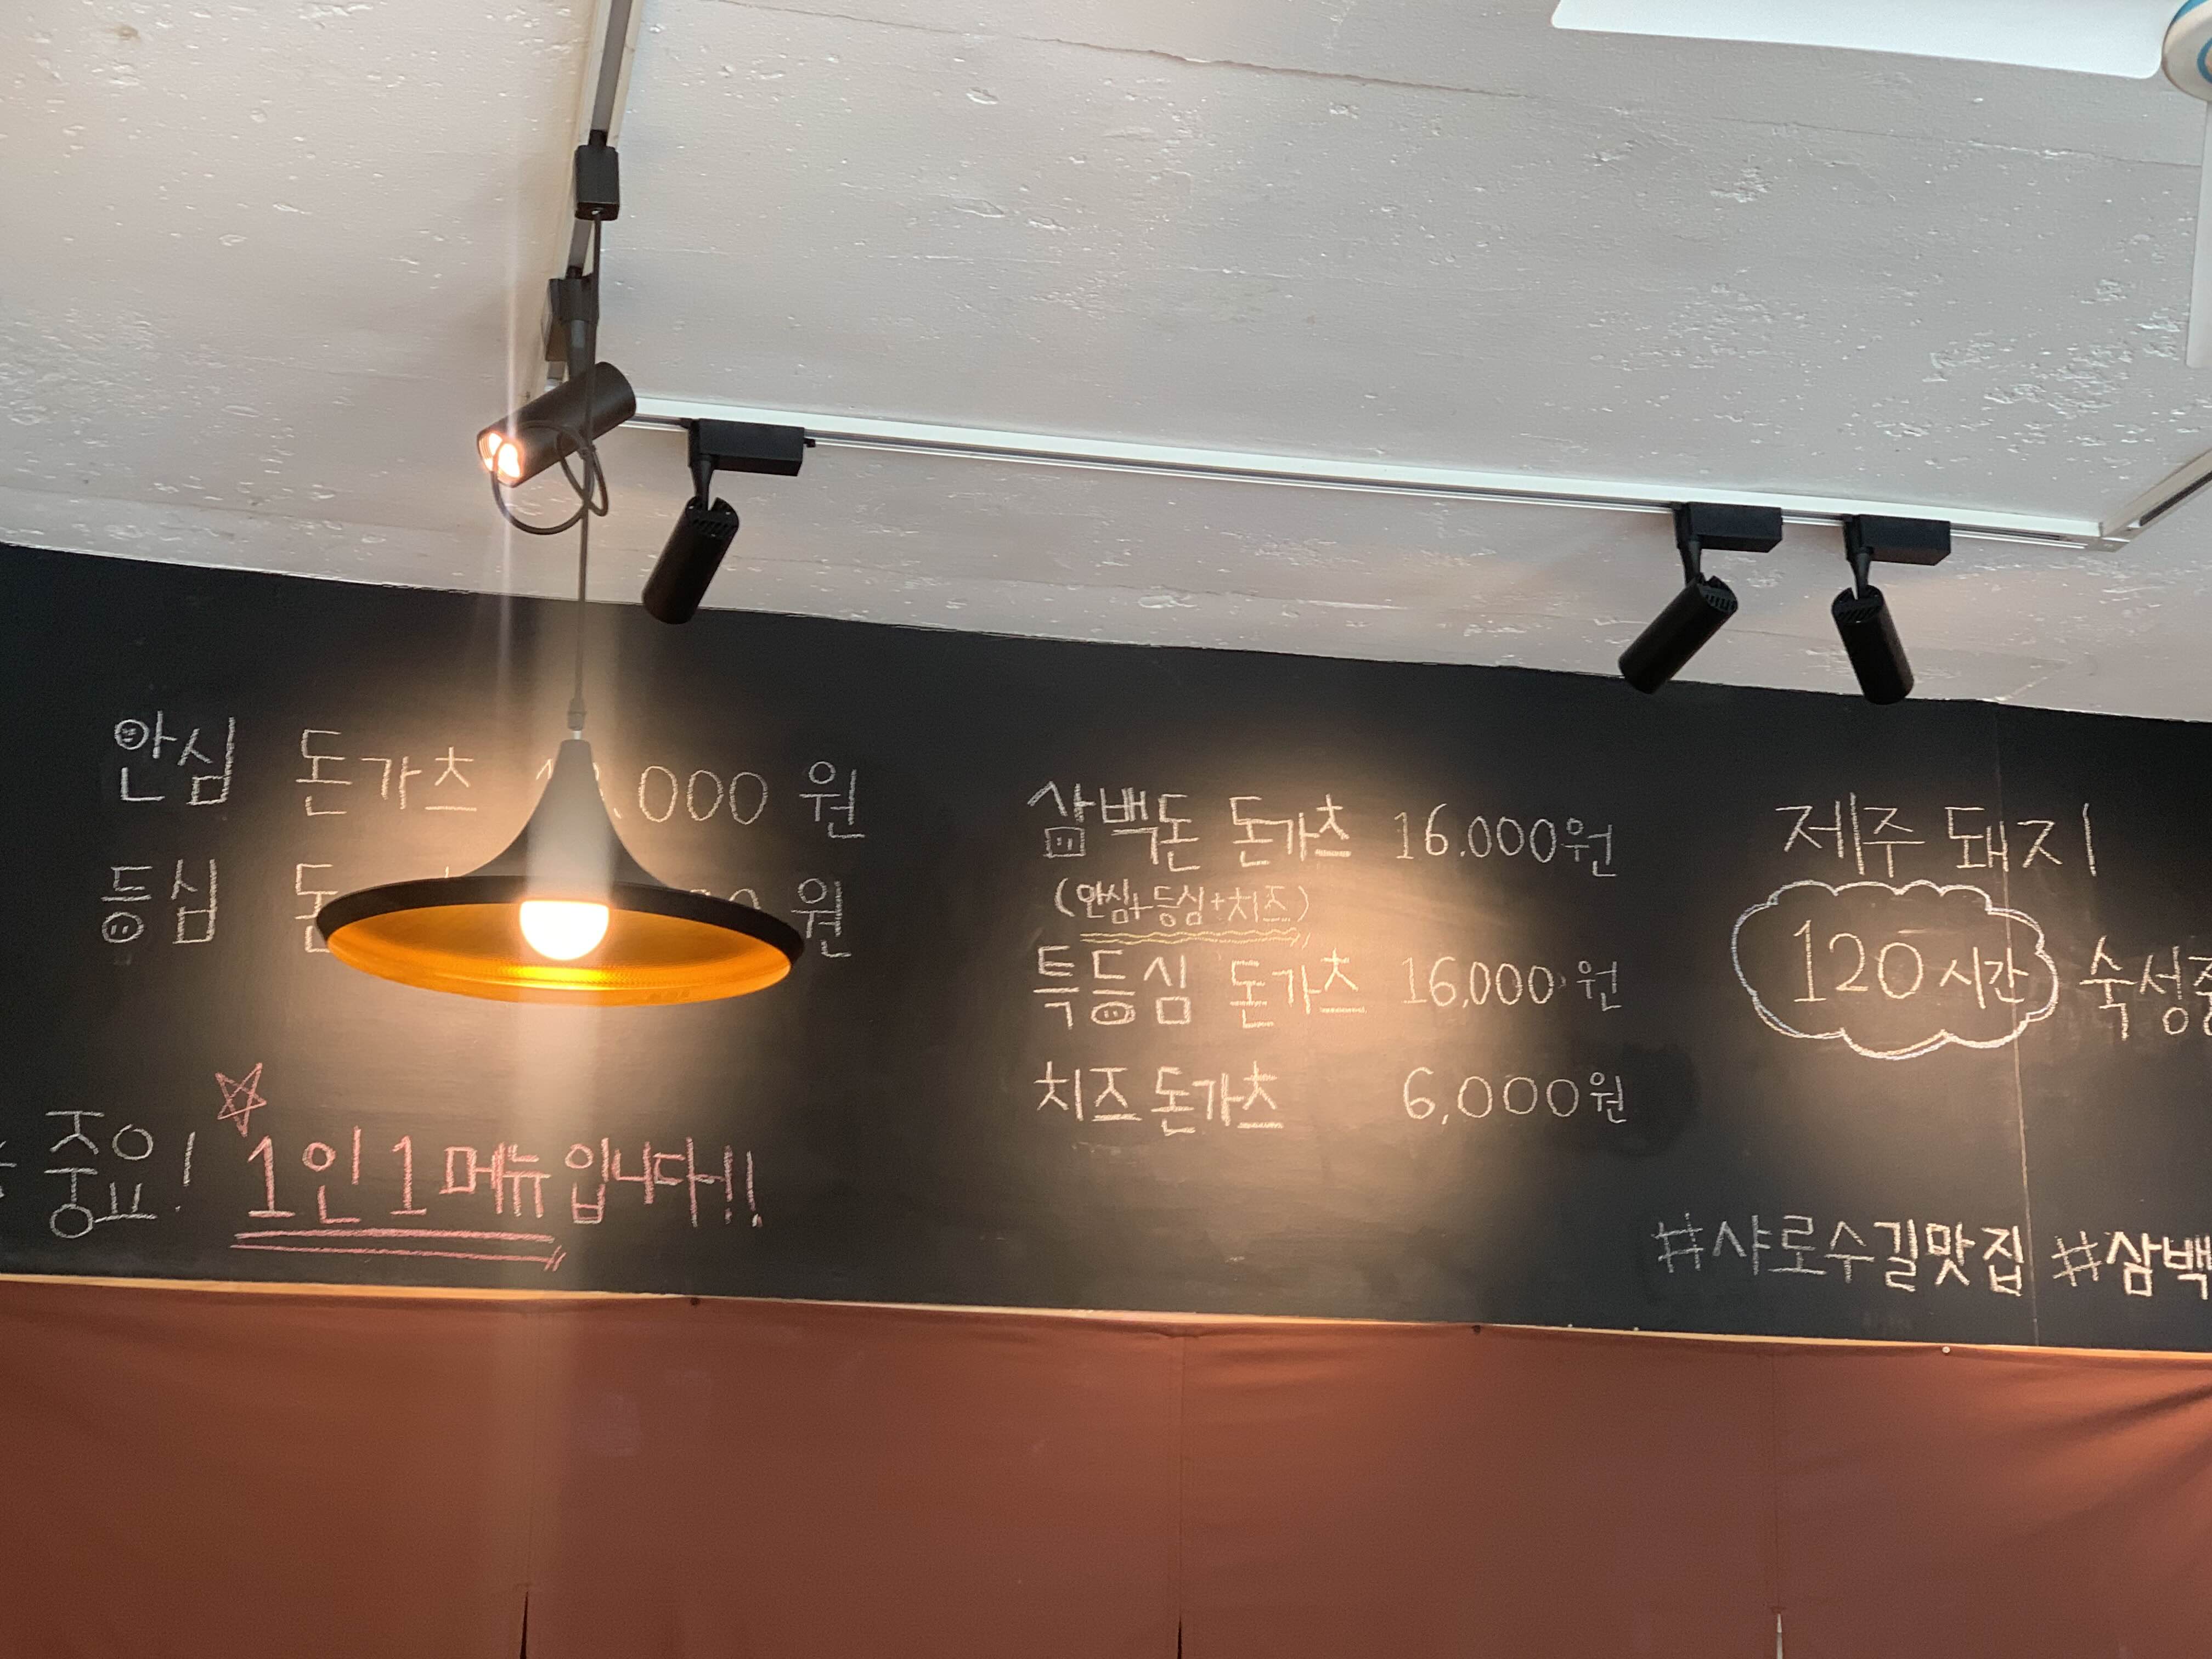 안심 돈가츠 원
등심 원
중요! 1인 1메뉴입니다!!
삼백돈 돈가츠 16,000원
(안심+등심+치즈)
특등심 돈가츠 16,000원
치즈돈가츠 6,000원
제주 돼지
120시간 숙성
#샤로수길맛집 #삼백